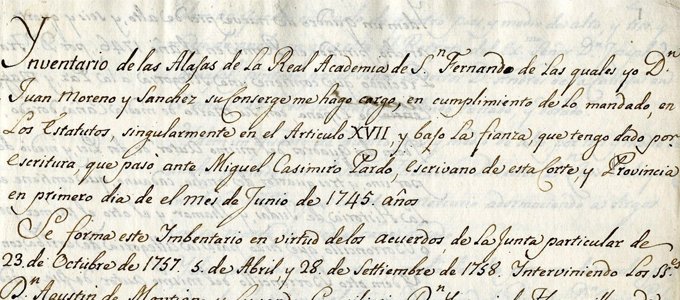 Ynventario de las Alajas de la Real Academia de S.n Fernando de las quales yo D.n
Juan Moreno y Sanchez su Conserge me hago cargo, en cumplimiento de lo mandado, en
Los Estatutos, singularmente en el Articulo XVII, y bajo la fianza, que tengo dado por
escritura, que pasò ante Miguel Casimiro Pardo, escrivano de esta Corte, y Provincia
en primero dia de el mes de Junio de 1745. años
Se forma este Imbentario en virtud de los acuerdos de la Junta particular de
23. de Octubre de 1757. 5. de Abril y 28. de Settiembre de 1758. Interviniendo Los SS.es
D.n Agustin de Montiano y